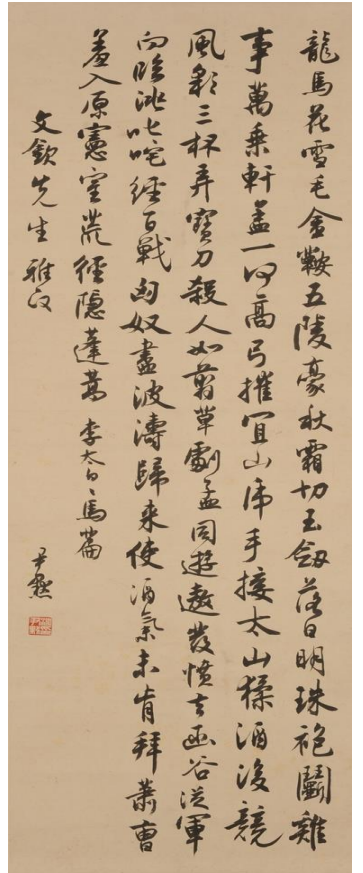 龍馬花雪毛金鞍五陵豪秋霜切玉劔落日明珠袍鬭雞
事萬乘軒蓋一何高弓摧宜山虎手接太山猱酒後競
風彩三杯弄寶刀殺人如翦草劇孟同遊遨發憤去函谷從軍
向臨洮叱咤經百戰匈奴盡波濤歸來使酒氣未肯拜蕭曹
羞入原憲室荒徑隱蓬蒿 李太白白馬篇 尹默
文欽先生雅政